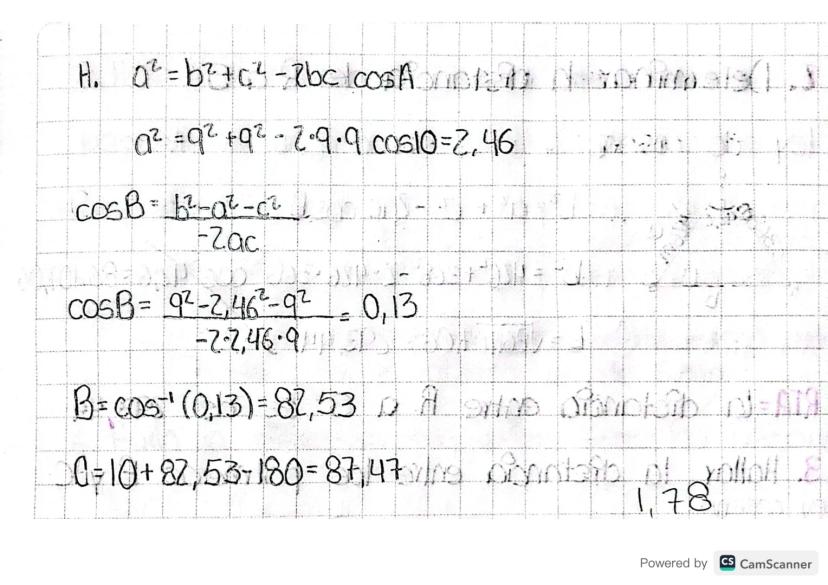 H. a² = b² + c² - 2bc cosA
a² = 9² + 9² - 2·9·9 cos10 = 2,46
cosB = b² - a² - c² / -2ac
cosB = 9² - 2,46² - 9² / -2·2,46·9 = 0,13
B = cos⁻¹ (0,13) = 82,53
C = 10 + 82,53 - 180 = 87,47
1,78
Powered by CS CamScanner